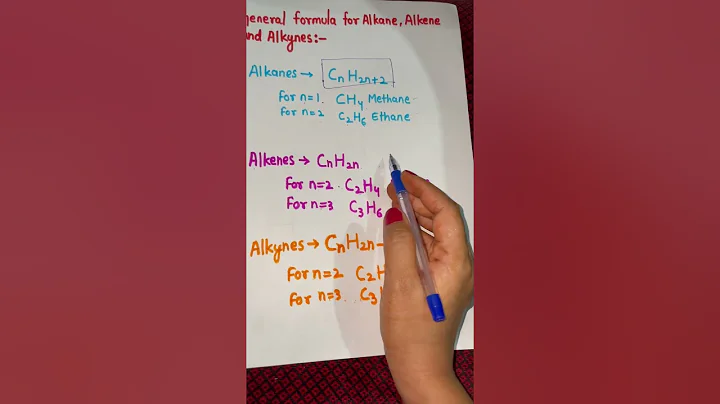 general formula for Alkane, Alkene
and Alkynes:-
Alkanes → CnH2n+2
for n=1. CH4 Methane
for n=2 C2H6 Ethane
Alkenes → CnH2n
for n=2. C2H4
for n=3 C3H6
Alkynes → CnH2n-
for n=2 C2H
for n=3. C3